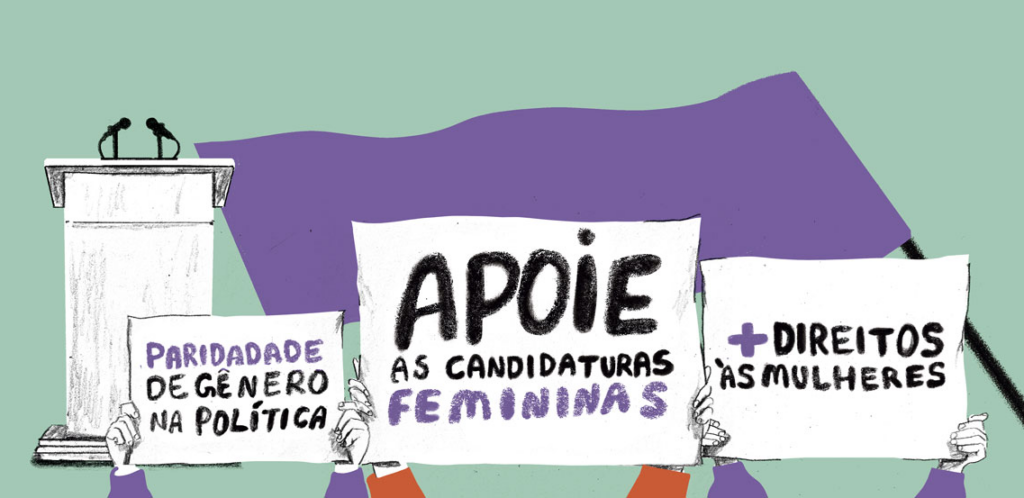 PARIDADADE
DE GÊNERO
NA POLÍTICA
APOiE
AS CANDIDATURAS
FEMININAS
+ DIREITOS
ÀS MULHERES